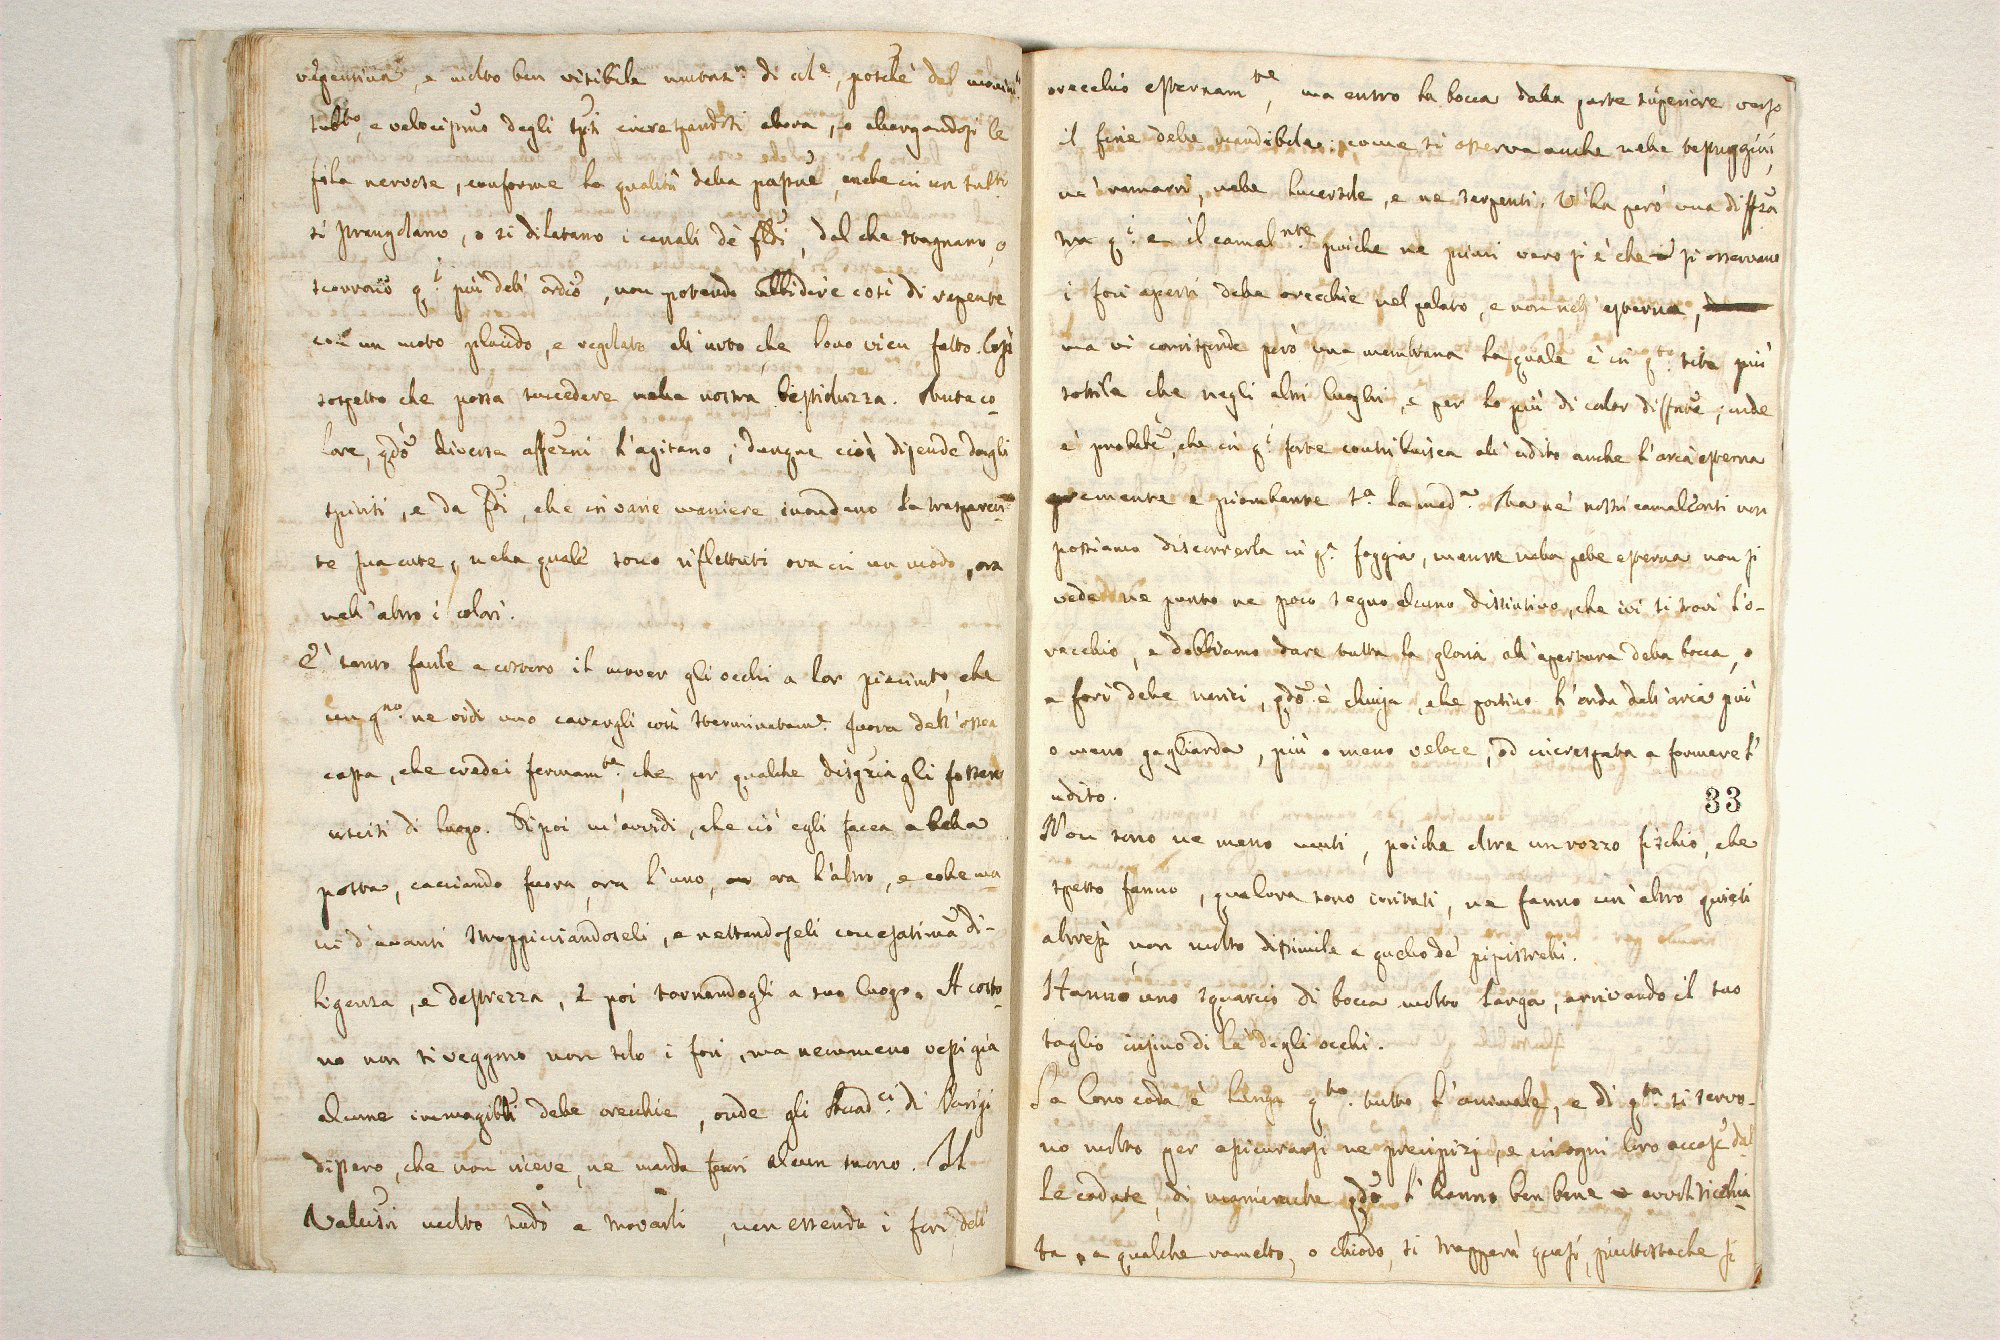 repentina, e molto ben visibile mutaz.ne di col.e, poichè dal movim.to
subito, e velocissimo degli sp.ti increspandosi allora, o allargandosi le
fila nervose, conforme la qualità della passne, anche in un subito
si strangolano, o si dilatano i canali de' fldi, dal che stagnano, o
scorrono q.i più dell' ordio, non potendo ubbidire così di repente
con un moto placido, e regolato all' urto, che loro vien fatto. Così
sospetto che possa succedere nella nostra bestioluzza. Muta co-
lore, qdo diverse affezni l'agitano; dunque ciò dipende dagli
spiriti, e da fldi, che in varie maniere inondano la trasparen-
te sua cute, nella quale sono riflettuti ora in un modo, ora
nell' altro i colori.
È tanto facile a costoro il mover gli occhi a lor piacimto, che
un g.no ne vidi uno cavargli così sterminatam.e fuora dell' ossea
cassa, che credei fermam.te, che per qualche disgzia gli fossero
usciti di luogo. Di poi m'avvidi, che ciò egli facea a bella
posta, cacciando fuora, ora l'uno, ora l'altro, e colle ma
ni d'avanti stroppicciandoseli, e nettandoseli con esatima di-
ligenza, e destrezza, e poi tornandogli a suo luogo. A costo-
no non si veggono non solo i fori, ma nemmeno vestigia
alcune immagibli delle orecchie, onde gli Accad.ci di Parigi
dissero, che non riceve, ne manda fuori alcun suono. Il
Valisri molto sudò a trovarli, non essendo i fori dell'
orecchio esternam.te, ma entro la bocca dalla parte superiore verso
il fine delle mandibole: come si osserva anche nelle testuggini,
ne' ramarri, nelle lucertole, e ne serpenti. V'ha però una diffza
tra q.i e il camal.nte poiche ne primi vero si è che si osservano
i fori aperti delle orecchie nel palato, e non nell' esterna,
ma vi corrisponde però una membrana la quale è in q.to sito più
sottile che negli altri luoghi, e per lo più di color diffnte, onde
è probabe, che in q.i forse contribuisca all' udito anche l'aria esterna
premente e piombante s.a la med.a Ma ne' nostri camalEonti non
possiamo discorrerla in q.a foggia, mentre nella pelle esterna non si
vede ne punto ne poco segno alcuno distintivo, che ivi si trovi l'o-
recchio, e dobbiamo dare tutta la gloria all' apertura della bocca, o
a fori delle narici, qdo è chiusa, che portino l'onda dell' aria più
o meno gagliarda, più o meno veloce, od increspata a formare l'
udito.
33
Non sono ne meno muti, poiche oltre un rozzo fischio, che
spesso fanno, qualora sono irritati, ne fanno un' altro quieti
altresì non molto dissimile a quello de' pipistrelli.
Hanno uno squarcio di bocca molto larga, arrivando il suo
taglio insino di là degli occhi.
La loro coda è lunga q.to tutto l'animale, e di q.ta si servo-
no molto per assicurarsi ne precipizj, e in ogni loro accasu dal
le cadute, di manierache qdo l'hanno ben bene avviticchia
ta, a qualche rametto, o chiodo, si strapperà quasi, piuttostoche si